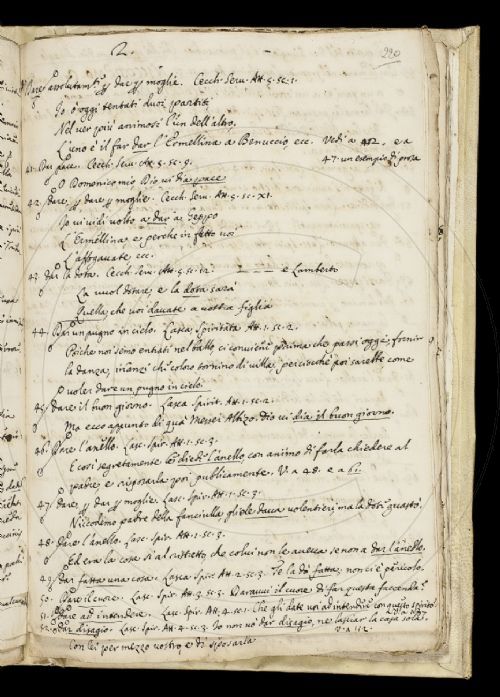 2.
220
40. Dare assolutam.te p dar p moglie. Cecch. Serv. Att. 5. sc. 1.
Io ò oggi tentati duoi partiti
Nel ver più animosi l'un dell'altro,
L'uno è il far dar l'Ermellina a Benuccio, ecc. Vedi a 42. e a
47. un esempio di prosa
41. Dar pace. Cecch. Serv. Att. 5. sc. 9.
O Domenico mio Dio vi dia pace
42. Dare, p dar p moglie. Cecch. Serv. Att. 5. sc. XI.
Io vi vidi volto a dar a Geppo
L'Ermellina e perche in fatto voi
L'affogavate, ecc.
43. Dar la dota. Cecch. Serv. Att. 5. sc. 12. e Lamberto
La vuol dotare, e la dota sarà
Quella, che voi davate a vostra figlia
44. Dar un pugno in cielo. Lasca Spiritata Att. 1. sc. 2.
Poiche noi semo entrati nel ballo, ci conviene prima che passi oggi, fornir
la danza, innanzi che coloro tornino di villa, perciocchè poi sarebbe come
voler dare un pugno in cielo
45. Dare il buon giorno. Lasca Spirit. Att. 1. sc. 2.
Ma ecco appunto di qua Messer Albizo. Dio vi dia il buon giorno.
46. Dare l'anello. Lasc. Spir. Att. 1. sc. 3.
E così segretamente le diede l'anello, con animo di farla chiedere al
padre, e risposarla poi publicamente. V. a 48. e a
47. Dare, p dar p moglie. Lasc. Spir. Att. 1. sc. 3.
Niccodemo padre della fanciulla gliele dava volentieri, ma la dota guastò
48. Dare l'anello. Lasc. Spir. Att. 1. sc. 3.
Ed era la cosa sì al ristretto, che colui non le aveva se non a dar l'anello.
49. Dar fatta una cosa. Lasca Spir. Att. 2. sc. 3. Te la dò fatta, non ci è pericolo.
50. Dare il cuore. Lasc. Spir. Att. 3. sc. 3. Daravvi il cuore di far questa faccenda?
51. Dare ad intendere. Lasc. Spir. Att. 4. sc. 1. Che gli date voi ad intendere con questo spirito
52. Dar disagio. Lasc. Spir. Att. 4. sc. 3. Io non vo' dar disagio, nè lasciar la casa sola.
con lei per mezzo vostro, e di sposarla